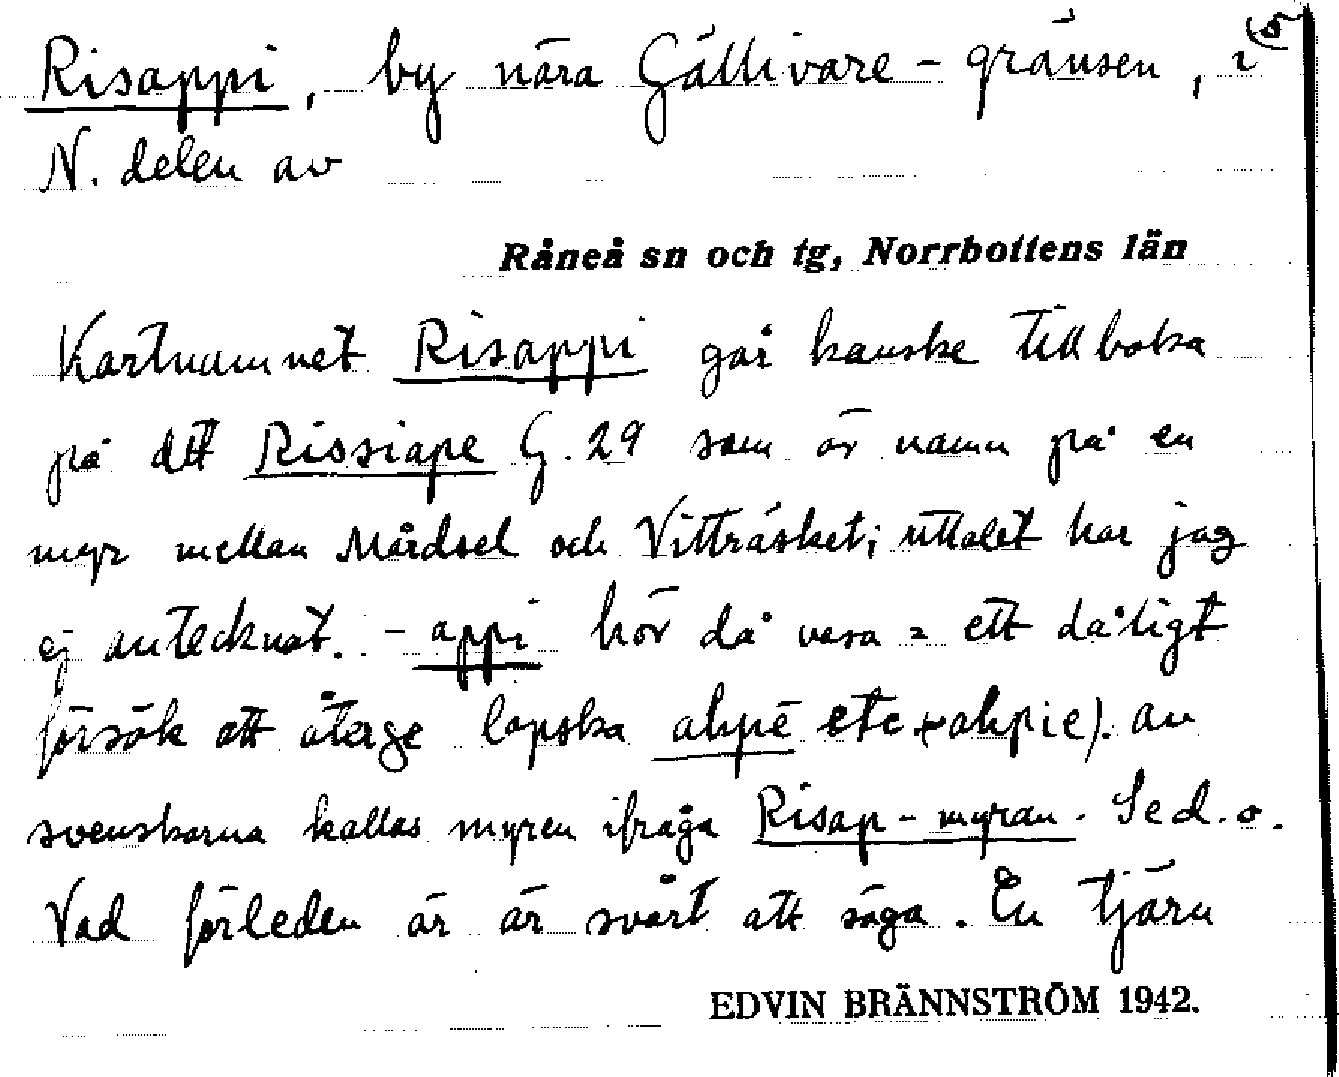 Risappi, by nära Gällivare-gränsen, i 5
N. delen av
Råneå sn och tg, Norrbottens län
Kartnamnet Risappi går kanske tillbaka
på det Rissiape G. 29 som är namn på en
myr mellan Mårdsel och Vitträsket; uttalet har jag
ej antecknat. -appi bör då vara = ett dåligt
försök att återge lapska ahpē etc (-ahpie). av
svenskarna kallas myren ifråga Risap-myran. Se d. o.
Vad förleden är är svårt att säga. En tjärn
EDVIN BRÄNNSTRÖM 1942.